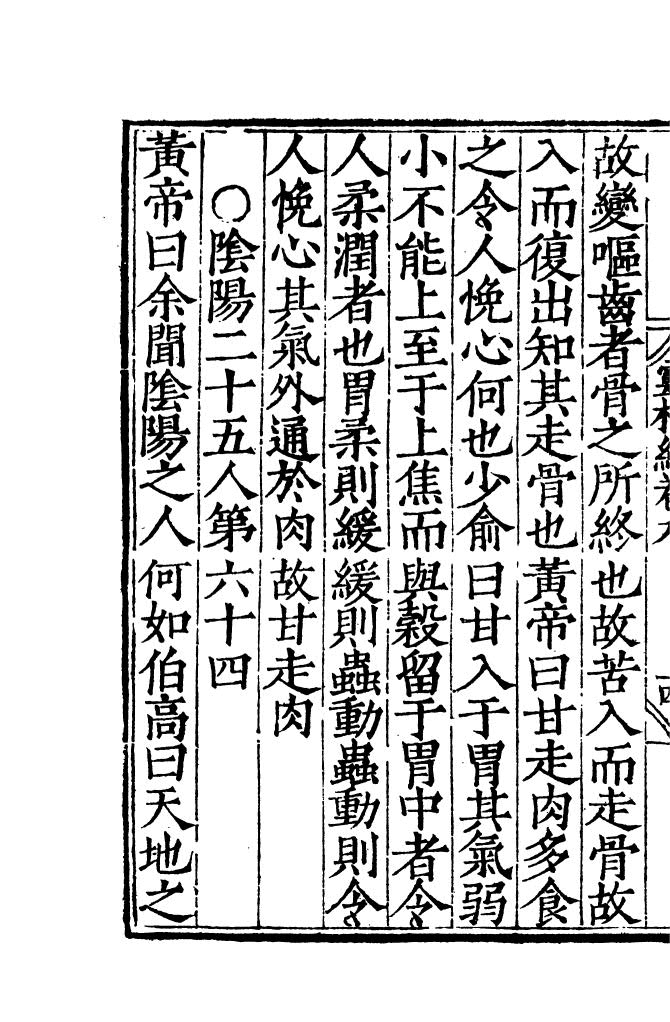 故變嘔齒者骨之所終也故苦入而走骨故
入而復出知其走骨也黃帝曰甘走肉多食
之令人悗心何也少俞曰甘入于胃其氣弱
小不能上至于上焦而與穀留于胃中者令
人柔潤者也胃柔則緩緩則蟲動蟲動則令
人悗心其氣外通於肉故甘走肉
○陰陽二十五人第六十四
黃帝曰余聞陰陽之人何如伯高曰天地之